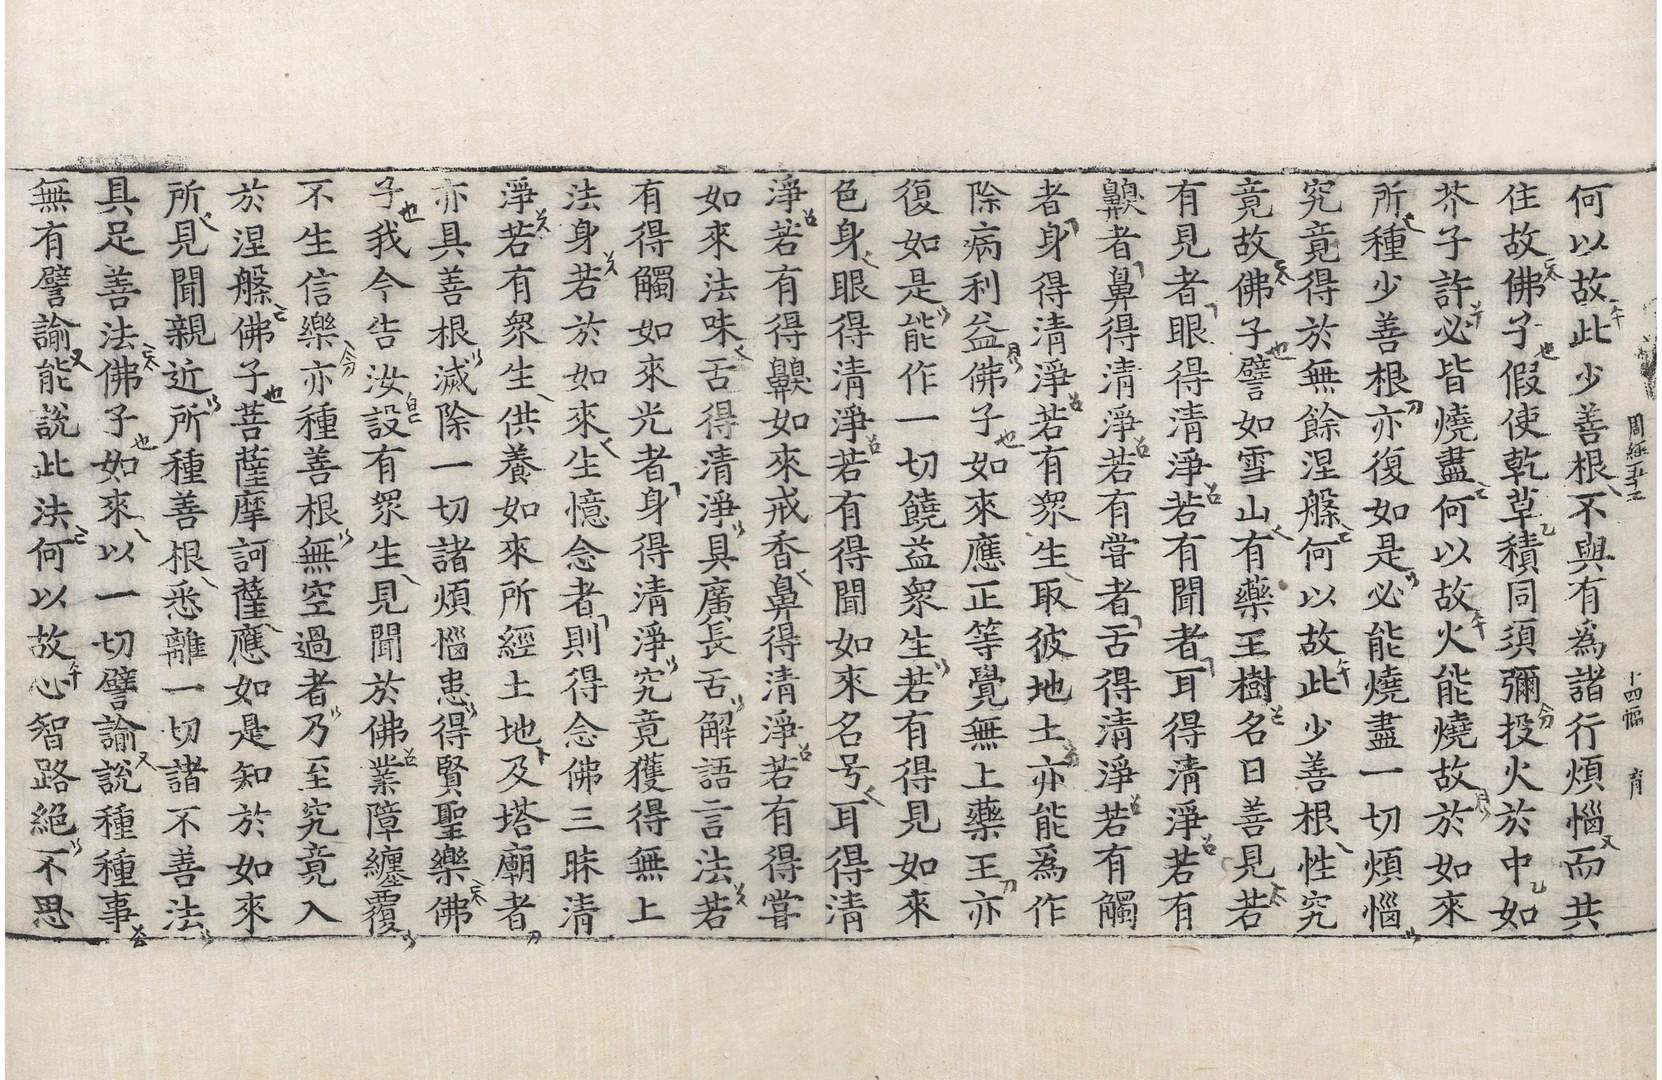 何以故此少善根不與有爲諸行煩惱而共
住故佛子假使乾草積同須彌投火於中如
芥子許必皆燒盡何以故火能燒故於如來
所種少善根亦復如是必能燒盡一切煩惱
究竟得於無餘涅槃何以故此少善根性究
竟故佛子譬如雪山有藥王樹名曰善見若
有見者眼得清淨若有聞者耳得清淨若有
齅者鼻得清淨若有嘗者舌得清淨若有觸
者身得清淨若有衆生取彼地土亦能爲作
除病利益佛子如來應正等覺無上藥王亦
復如是能作一切饒益衆生若有得見如來
色身眼得清淨若有得聞如來名号耳得清
淨若有得齅如來戒香鼻得清淨若有得嘗
如來法味舌得清淨具廣長舌解語言法若
有得觸如來光者身得清淨究竟獲得無上
法身若於如來生憶念者則得念佛三昧清
淨若有衆生供養如來所經土地及塔廟者
亦具善根滅除一切諸煩惱患得賢聖樂佛
子我今告汝設有衆生見聞於佛業障纏覆
不生信樂亦種善根無空過者乃至究竟入
於涅槃佛子菩薩摩訶薩應如是知於如來
所見聞親近所種善根悉離一切諸不善法
具足善法佛子如來以一切譬諭說種種事
無有譬諭能說此法何以故心智路絕不思